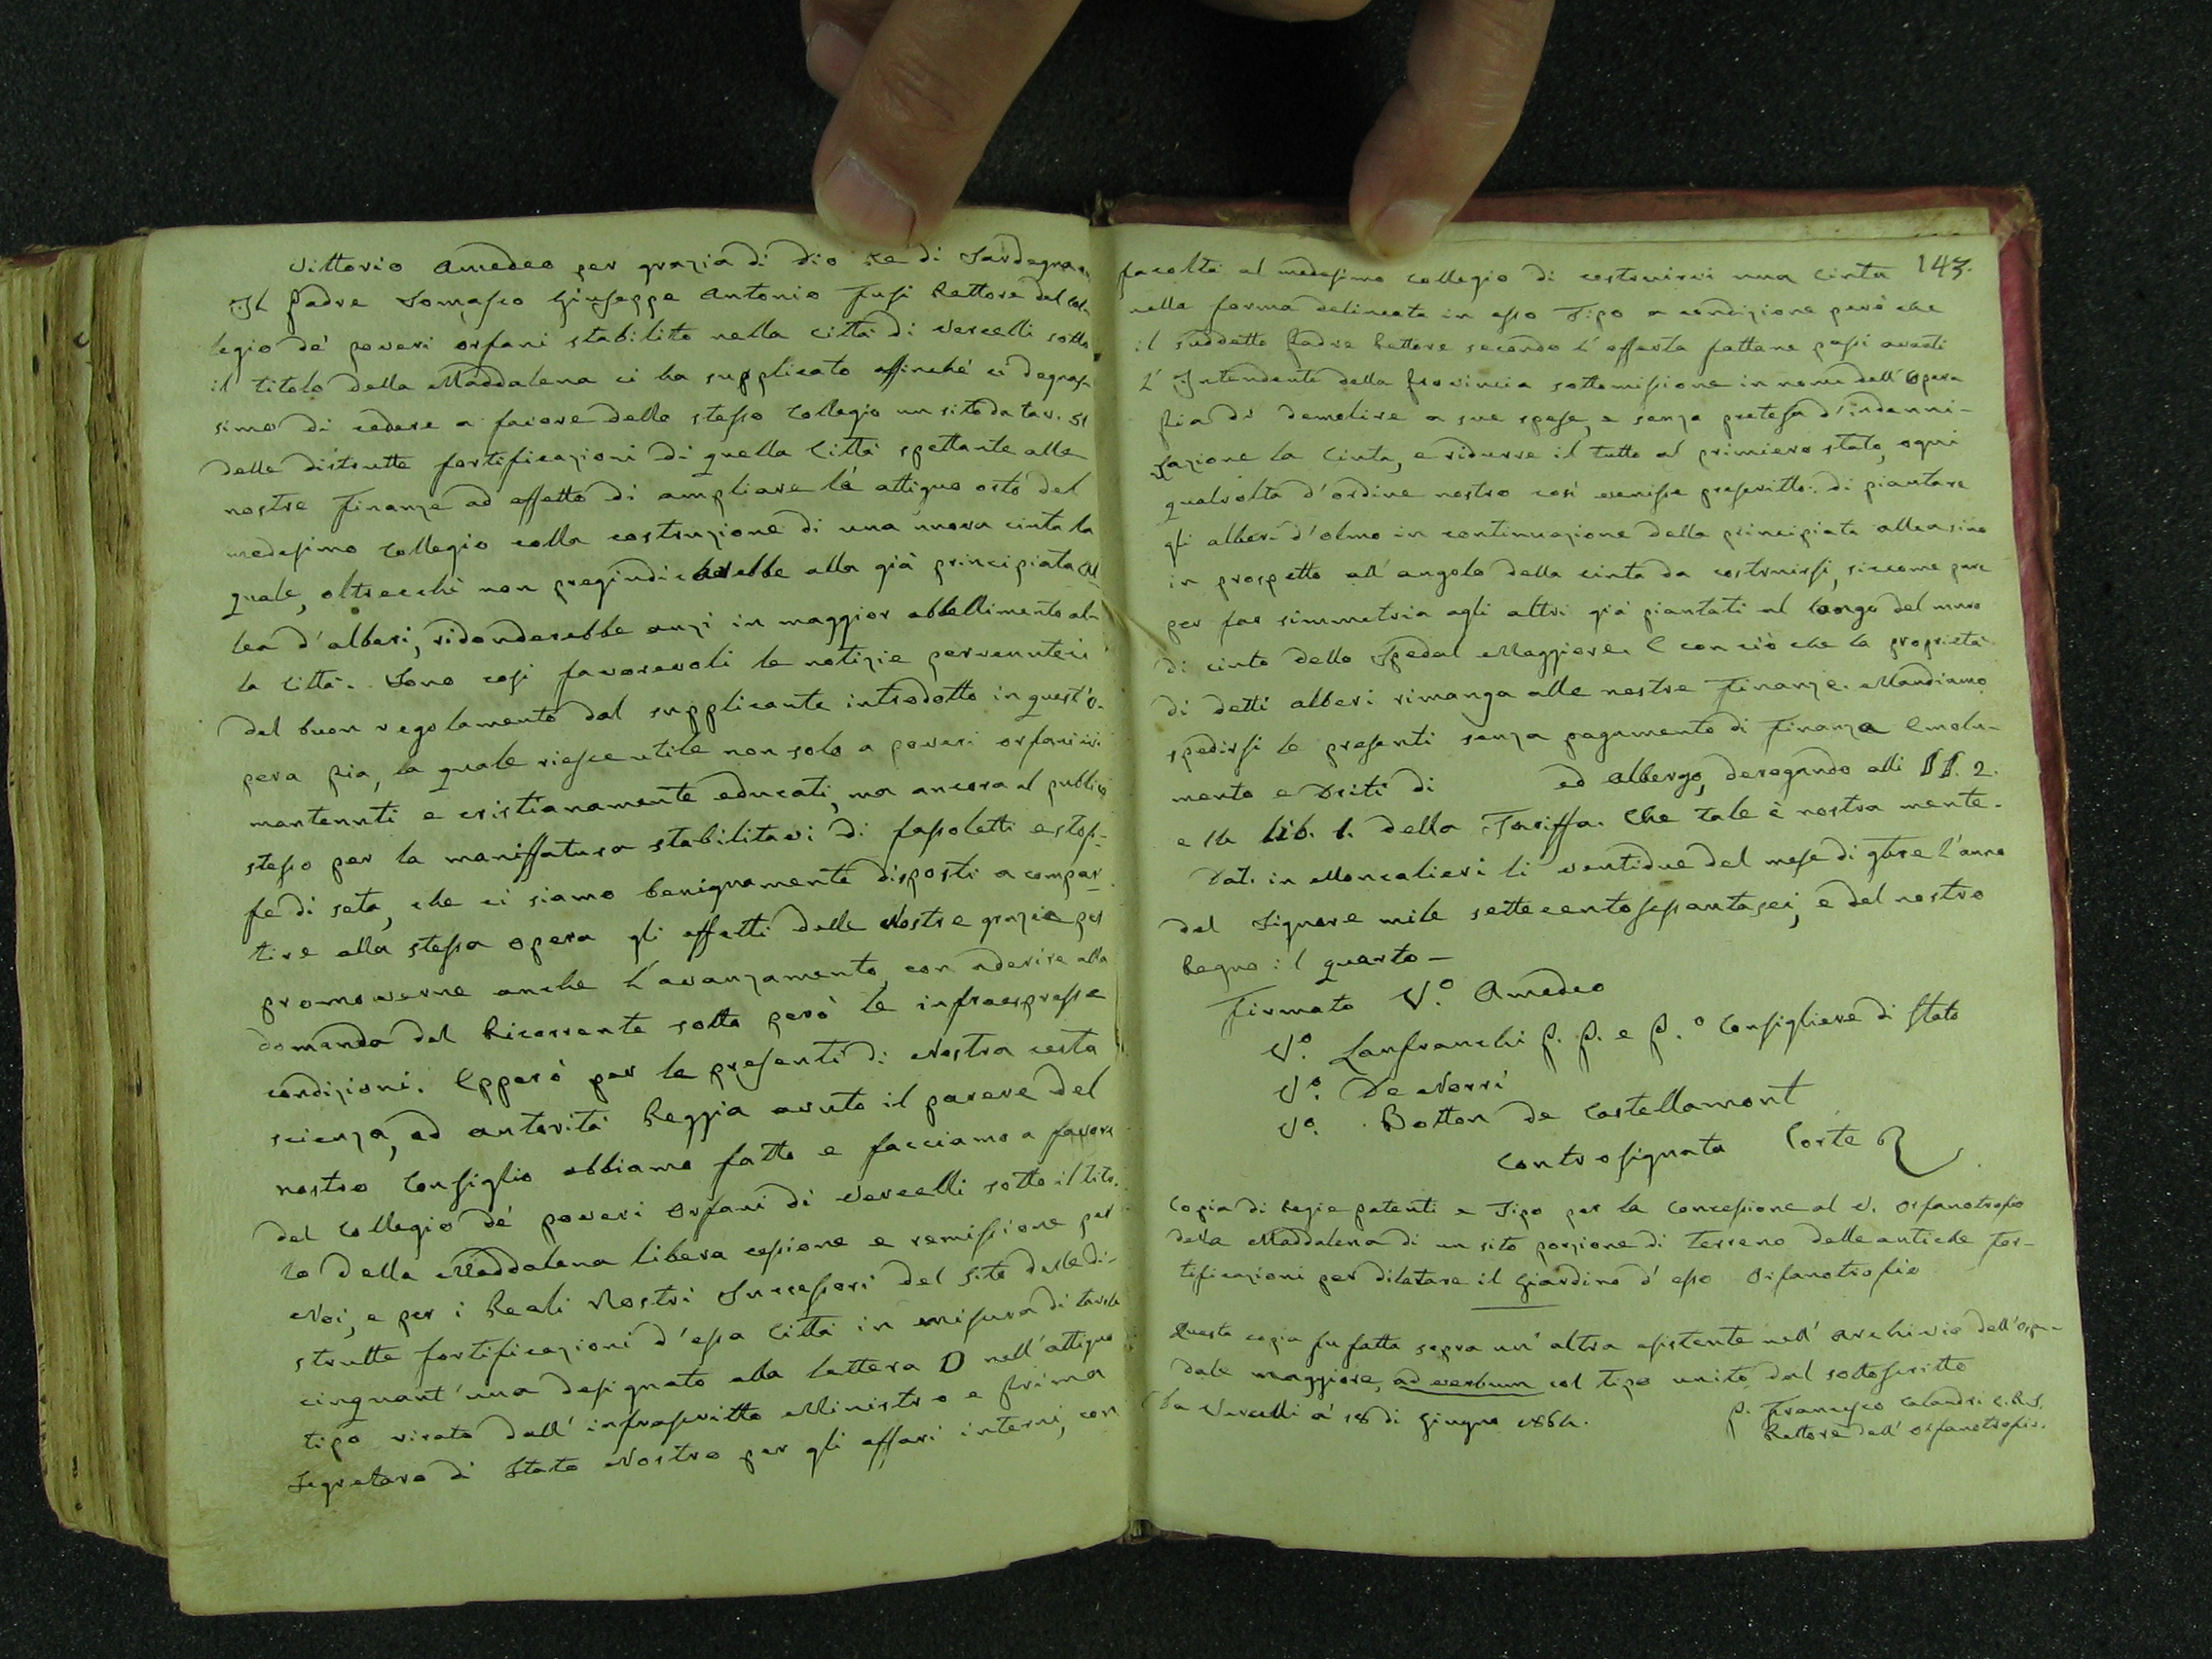 Vittorio Amedeo per grazia di Dio Re di Sardegna
Il Padre Somasco Giuseppe Antonio Fusi Rettore del Col-
legio de' poveri orfani stabilito nella città di Vercelli sotto
il titolo della Maddalena ci ha supplicato affinchè ci degnas-
simo di cedere a favore dello stesso Collegio un sito da tav. 51
delle distrutte fortificazioni di quella Città spettante alle
nostre Finanze ad effetto di ampliare l'attiguo orto del
medesimo Collegio colla costruzione di una nuova cinta la
quale, oltrecchè non pregiudicherebbe alla già principiata al-
lea d'alberi, ridonderebbe anzi in maggior abbellimento al-
la Città. Sono così favorevoli le notizie pervenuteci
del buon regolamento dal supplicante introdotto in quest'o-
pera Pia, la quale riesce utile non solo a poveri orfani ivi
mantenuti e cristianamente educati, ma ancora al publico
stesso per la maniffatura stabilitavi di fassoletti e stof-
fe di seta, che ci siamo benignamente disposti a compar-
tire alla stessa opera gli effetti delle Nostre grazie per
promoverne anche l'avanzamento, con aderire alla
domanda del Ricorrente sotto però le infraespresse
condizioni. Epperò per le presenti di Nostra certa
scienza, ed autorità Reggia avuto il parere del
nostro Consiglio abbiamo fatto e facciamo a favore
del Collegio de' poveri Orfani di Vercelli sotto il tito-
lo della Maddalena libera cessione e remissione per
Noi, e per i Reali Nostri Successori del sito delle di-
strutte fortificazioni d'essa Città in misura di tavole
cinquant'una designato alla lettera D nell'attiguo
tipo visato dall'infrascritto Ministro e Prima
Segretaro di Stato Nostro per gli affari interni, con
143.
facoltà al medesimo Collegio di costruirvi una Cinta
nella forma delineata in esso Tipo a condizione però che
il suddetto Padre Rettore secondo l'offerta fattane passi avanti
l'Intendente della Provincia sottomissione in nome dell'Opera
Pia di demolire a sue spese, e senza pretesa d'indenni-
zazione la Cinta, e ridurre il tutto al primiero stato, ogni
qualvolta d'ordine nostro così venisse prescritto: di piantare
gli alberi d'olmo in continuazione della principiata allea sino
in prospetto all'angolo della cinta da costruirsi, siccome pure
per far simmetria agli altri già piantati al longo del muro
di cinta dello Spedal Maggiore. E con ciò che la proprietà
di detti alberi rimanga alle nostre Finanze. Mandiamo
spedirsi le presenti senza pagamento di Finanza Emolu-
mento e Driti di ed albergo, derogando alli §§. 2.
e 14 lib. 1. della Tariffa. Che tale è nostra mente.
Dat. in Moncalieri li ventidue del mese di 9bre l'anno
del Signore mile settecentosessantasei, e del nostro
Regno il quarto —
Firmato V.° Amedeo
V.° Lanfranchi P. P. e P.° Consigliere di Stato
V.° De Norri
V.° Botton de Castellamont
Controsignata Corte
Copia di Regie patenti e Tipo per la Concessione al V. Orfanotrofio
della Maddalena di un sito porzione di terreno delle antiche for-
tificazioni per dilatare il Giardino d'esso Orfanotrofio
Questa copia fu fatta sopra un'altra esistente nell'Archivio dell'Ospe-
dale maggiore, ad verbum col tipo unito dal sottoscritto
Da Vercelli a' 18 di Giugno 1864.
P. Francesco Calandri C.R.S.
Rettore dell'Orfanotrofio.